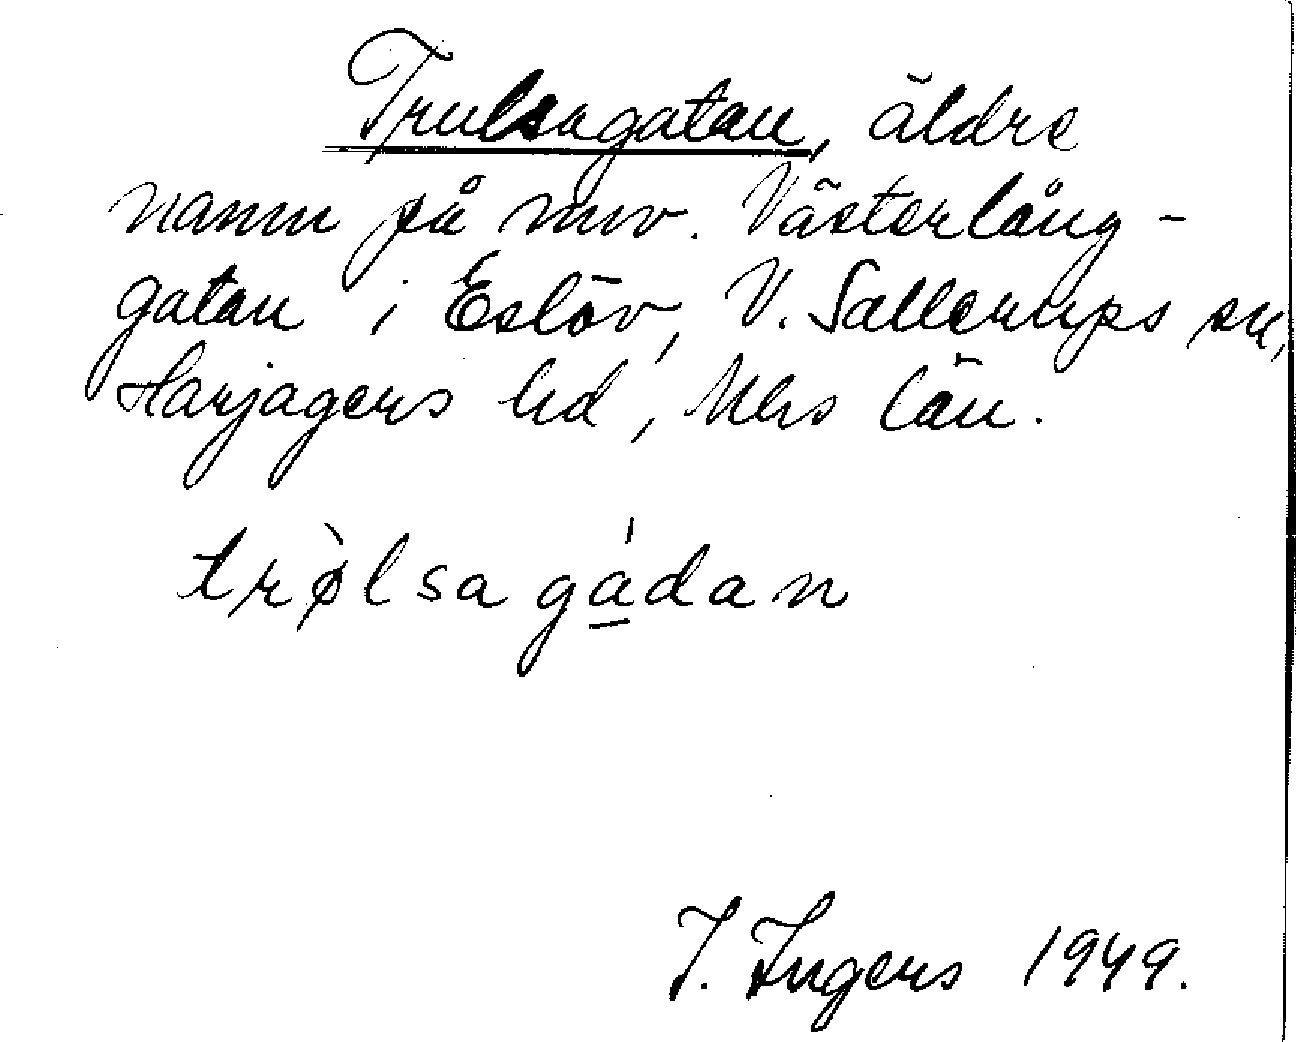 Trulsagatan, äldre
namn på nuv. Västerlång-
gatan i Eslöv, V. Sallerups sn,
Harjagers hd, Mhs län.
trø̀lsagá̱dan
I. Ingers 1949.